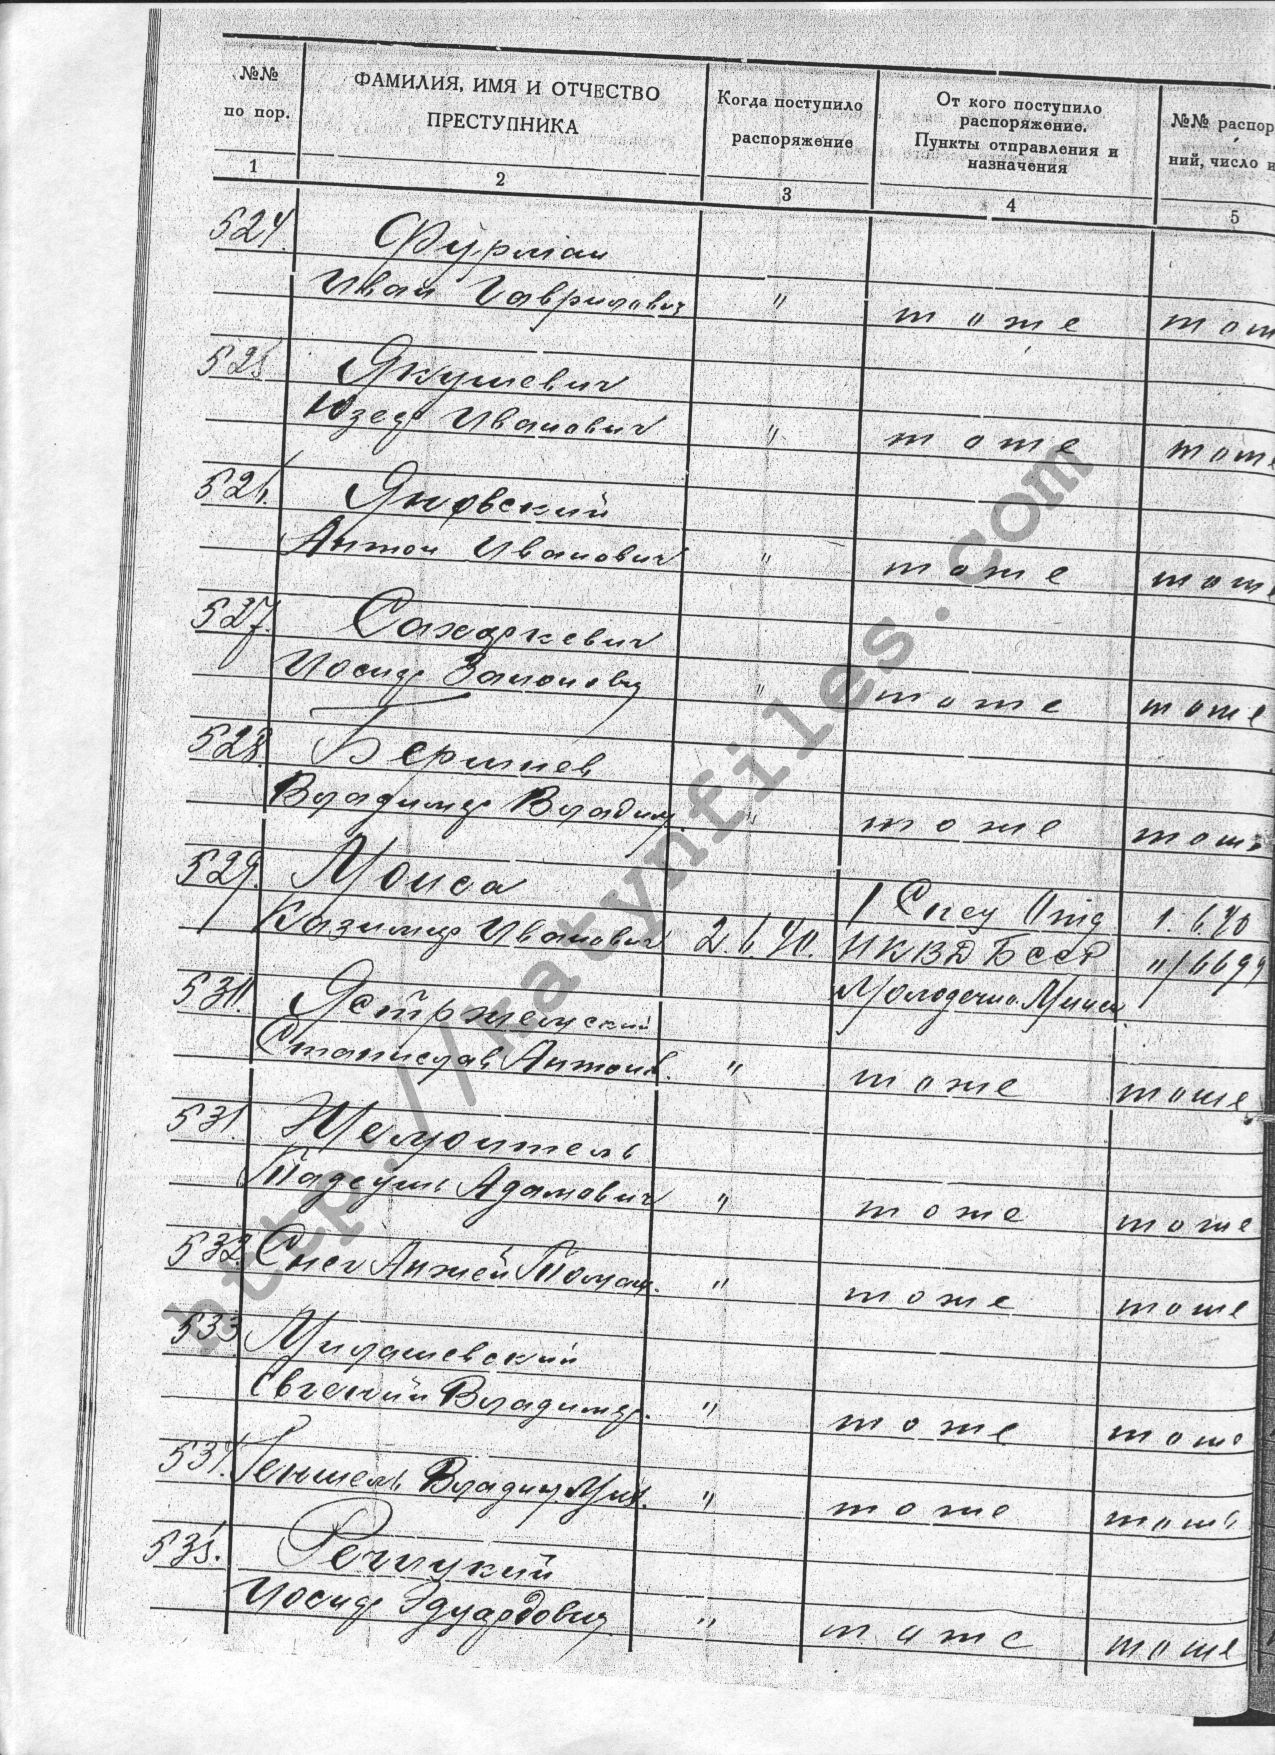 №№
по пор.
ФАМИЛИЯ, ИМЯ И ОТЧЕСТВО
ПРЕСТУПНИКА
Когда поступило
распоряжение
От кого поступило
распоряжение.
Пункты отправления и
назначения
№№ распор
ний, число и
1 2 3 4 5
524. Фурман
Иван Гаврилович " тоже тож
525 Якушевич
Юзеф Иванович " тоже тоже
526. Яновский
Антон Иванович " тоже тоже
527. Сахаркевич
Иосиф " тоже тоже
528.
Владимир Владим. " тоже тоже
529. Мойса 1 Спец Отд 1.6.40
Казимир Иванович 2.6.40. НКВД БССР
Молодечно Минск
530. Ястржемский
Станислав Антонов. " тоже тоже
531.
Тадеуш Адамович " тоже тоже
532. Снег Анжей Томаш. " тоже тоже
533 Милашевский
Евгений Владимир. " тоже тоже
534. Геншель Владим. Мих. " тоже тоже
535. Речицкий
Иосиф Эдуардович " тоже тоже
http://katynfiles.com